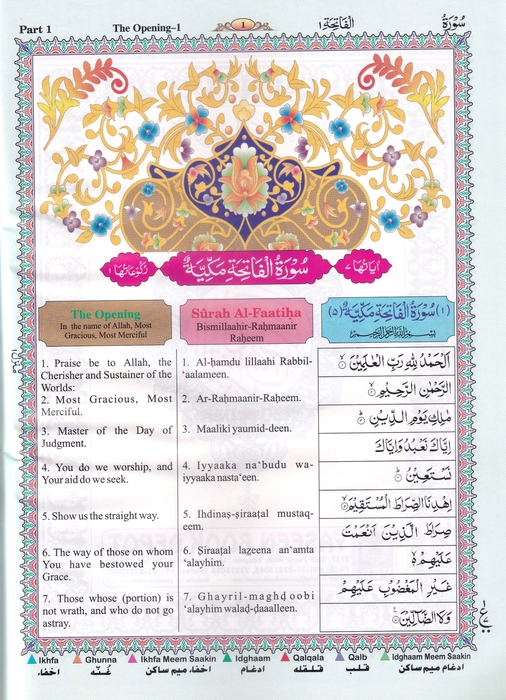 Part 1 The Opening–1 1 اَلْفَاتِحَة ١ سُوْرَةُ
اٰيَاتُهَا ٧ سُوْرَةُ الْفَاتِحَةِ مَكِّيَّةٌ رُكُوْعَاتُهَا ١
The Opening
In the name of Allah, Most
Gracious, Most Merciful
Sûrah Al-Faatiḥa
Bismillaahir-Raḥmaanir
Raḥeem
(١) سُوْرَةُ الْفَاتِحَةِ مَكِّيَّةٌ (٥)
بِسْمِ اللّٰهِ الرَّحْمٰنِ الرَّحِيْمِ
1. Praise be to Allah, the
Cherisher and Sustainer of the
Worlds:
2. Most Gracious, Most
Merciful.
3. Master of the Day of
Judgment.
4. You do we worship, and
Your aid do we seek.
5. Show us the straight way.
6. The way of those on whom
You have bestowed your
Grace.
7. Those whose (portion) is
not wrath, and who do not go
astray.
1. Al-ḥamdu lillaahi Rabbil-
‘aalameen.
2. Ar-Raḥmaanir-Raḥeem.
3. Maaliki yaumid-deen.
4. Iyyaaka na‘budu wa-
iyyaaka nasta‘een.
5. Ihdinaṣ-ṣiraaṭal mustaq-
eem.
6. Ṣiraaṭal lazeena an‘amta
‘alayhim.
7. Ghayril-maghḍoobi
‘alayhim walaḍ-ḍaalleen.
اَلْحَمْدُ لِلّٰهِ رَبِّ الْعٰلَمِيْنَ ۙ
الرَّحْمٰنِ الرَّحِيْمِ ۙ
مٰلِكِ يَوْمِ الدِّيْنِ ۗ
اِيَّاكَ نَعْبُدُ وَاِيَّاكَ
نَسْتَعِيْنُ ۗ
اِهْدِنَا الصِّرَاطَ الْمُسْتَقِيْمَ ۙ
صِرَاطَ الَّذِيْنَ اَنْعَمْتَ
عَلَيْهِمْ ۙ
غَيْرِ الْمَغْضُوْبِ عَلَيْهِمْ
وَلَا الضَّآلِّيْنَ
Ikhfa Ghunna Ikhfa Meem Saakin Idghaam Qalqala Qalb Idghaam Meem Saakin
اخفاء غُنّه اخفاء میم ساکن ادغام قلقله قلب ادغام میم ساکن